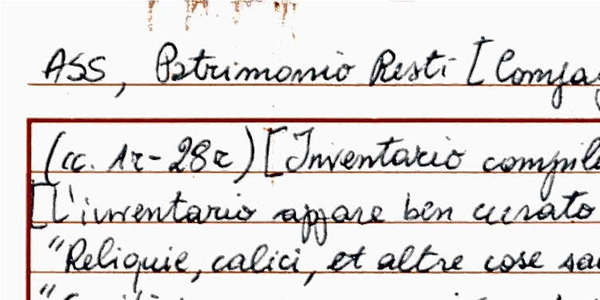 ASS, Patrimonio Resti [Compa
(cc. 1r-28r) [Inventario compil
[L'inventario appare ben curato
"Reliquie, calici, et altre cose sa